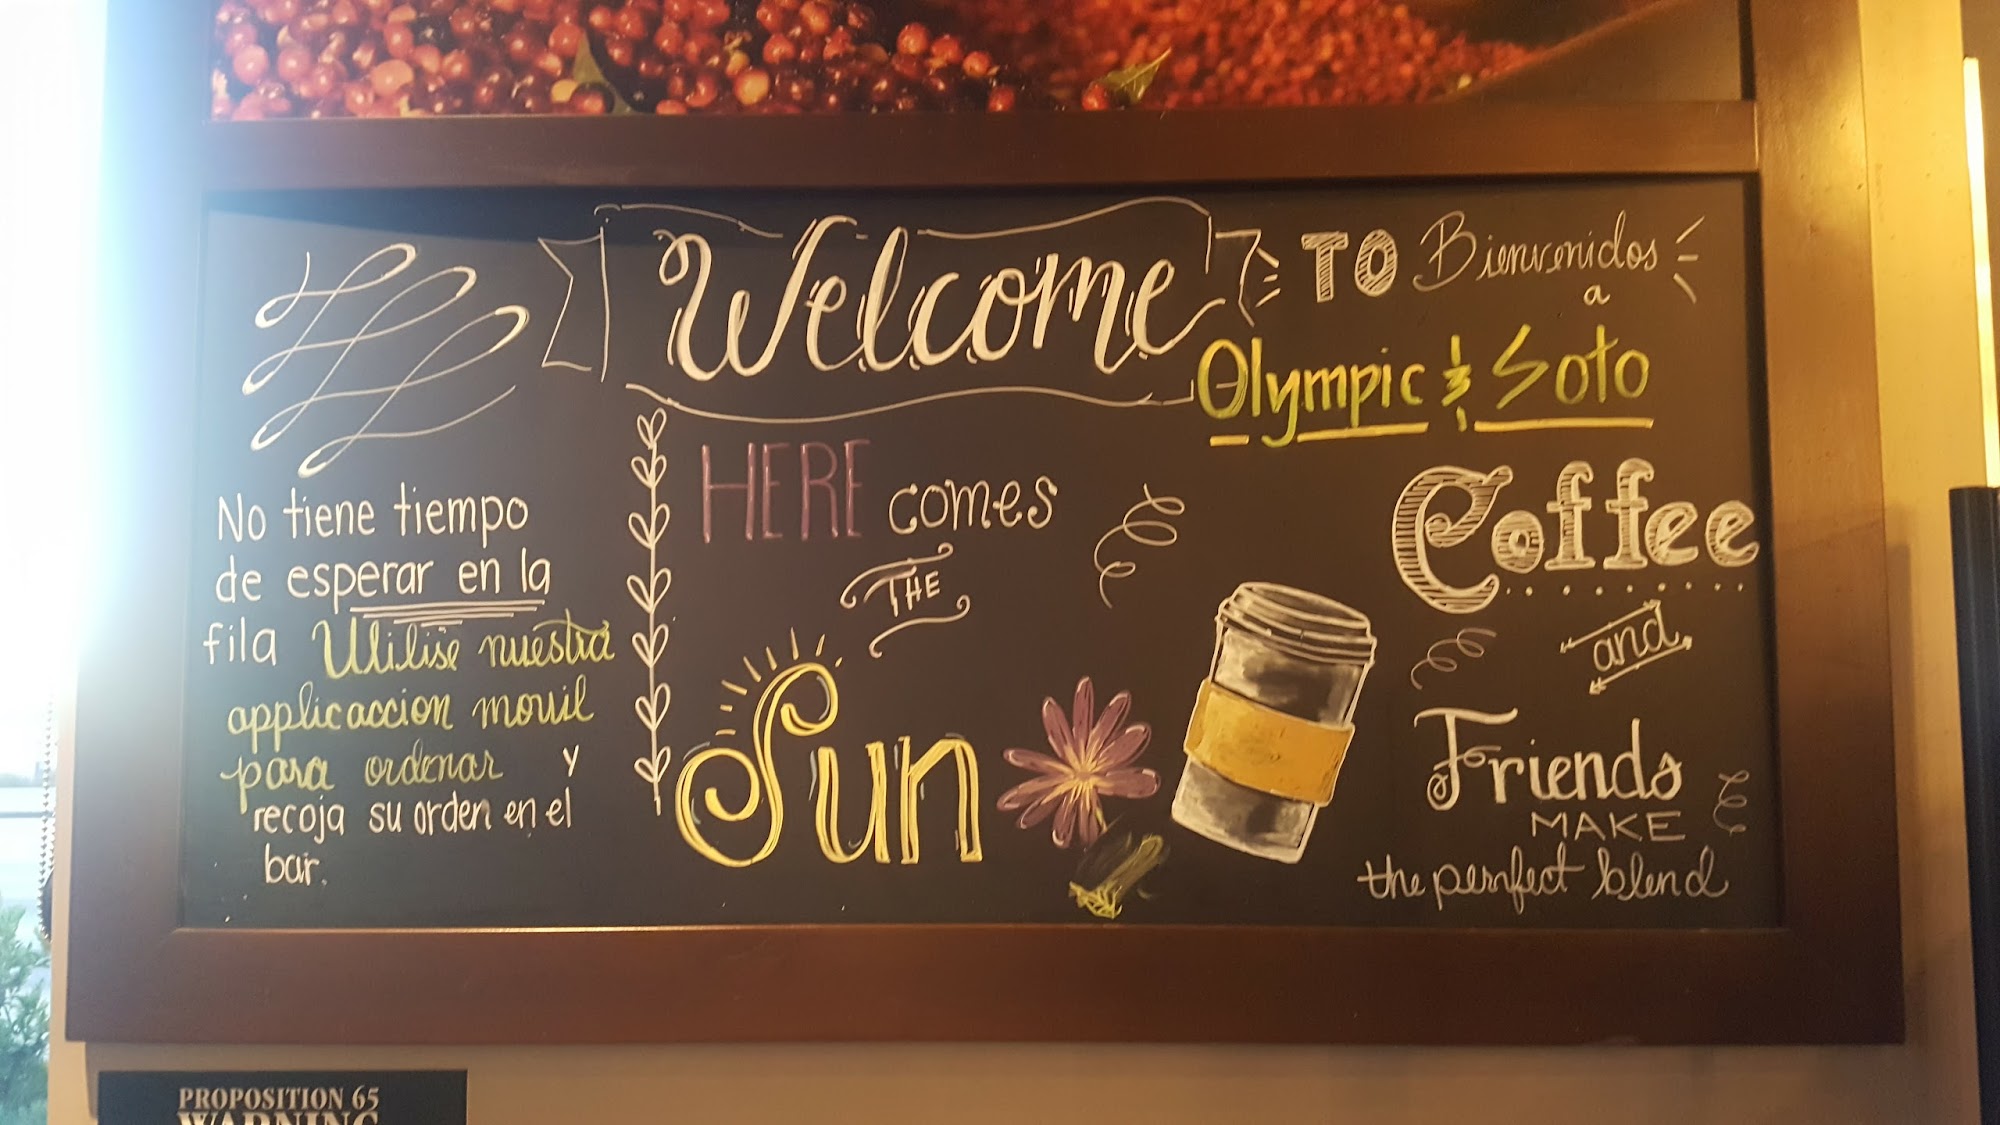 Welcome TO Bienvenidos
a
Olympic & Soto
No tiene tiempo
de esperar en la
fila Utilise nuestra
applicaccion movil
para ordenar y
recoja su orden en el
bar.
HERE comes
THE
Sun
Coffee
and
Friends
MAKE
the perfect blend
PROPOSITION 65
WARNING